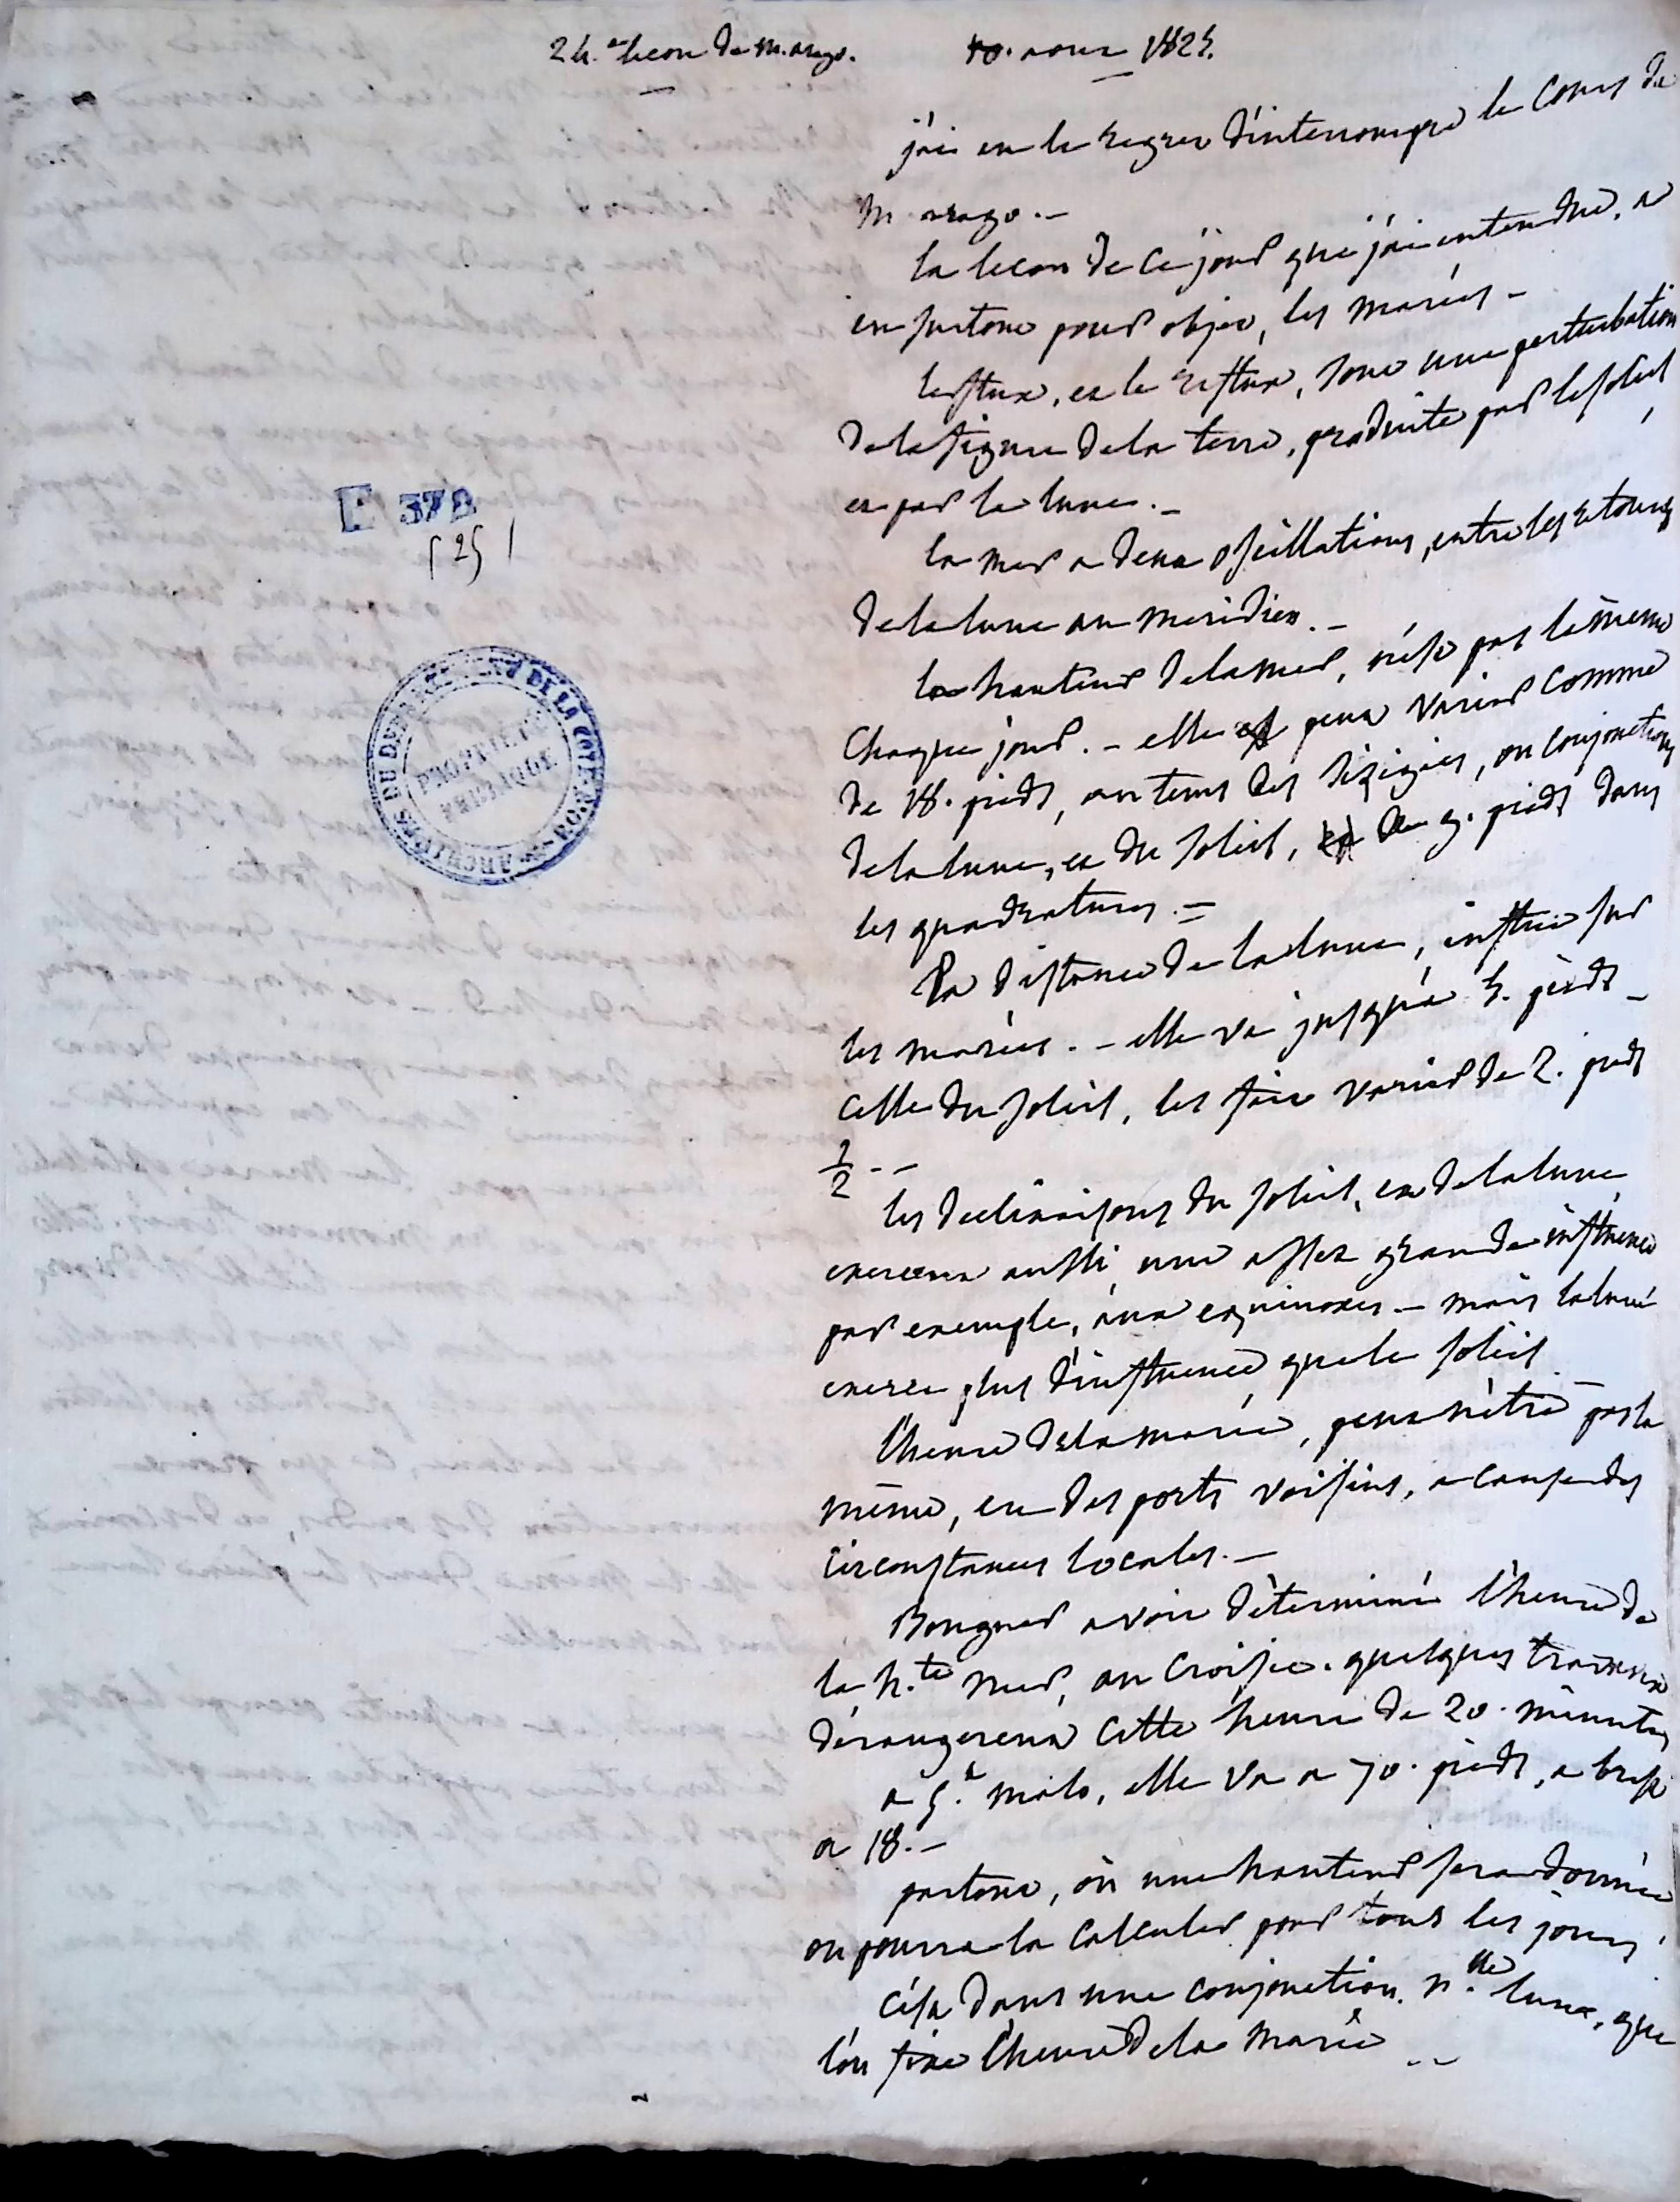 24.e lecon de m. arago. 10. aout 1825.
j'ai eu le regret d'interrompre le Cours de
m. arago. -
la lecon de ce jour que j'ai entendue, a
eu surtout pour objet, les marées -
le flux, et le reflux, sont une perturbation
de la figure de la terre, produite par le soleil
et par la lune. -
la mer a deux oscillations, entre les retours
de la lune au meridien. -
la hauteur de la mer, n'est pas la même
Chaque jour. - elle peut varier Comme
de 18. pieds, au tems des sizigies, ou conjonctions
de la lune, et du soleil, a 9. pieds dans
les quadratures. =
La distance de la lune, influe sur
les marées. - elle va jusqu'à 5. pieds -
Celle du soleil, les fait varier de 2. pieds
1/2 - -
les declinaisons du soleil, et de la lune
exercent aussi une assez grande influence
par exemple, aux equinoxes - mais la lune
exerce plus d'influence que le soleil
l'heure de la marée, peut n'être pas la
même, en des ports voisins, a cause des
circonstances locales. -
Bouguer avoit déterminé l'heure de
la h.te mer, au Croisic. quelques travaux
dérangerent cette heure de 20. minutes
a St. malo, elle va a 70. pieds, a brest
a 18. -
partout, où une hauteur sera donnée
on pourra la Calculer pour tous les jours
C'est dans une conjonction. n.lle lune, que
l'on fixe l'heure de la marée - -
E 378
[25]
ARCHIVES DU DEPARTEMENT DE LA COTE-D'OR
PROPRIETE
PUBLIQUE